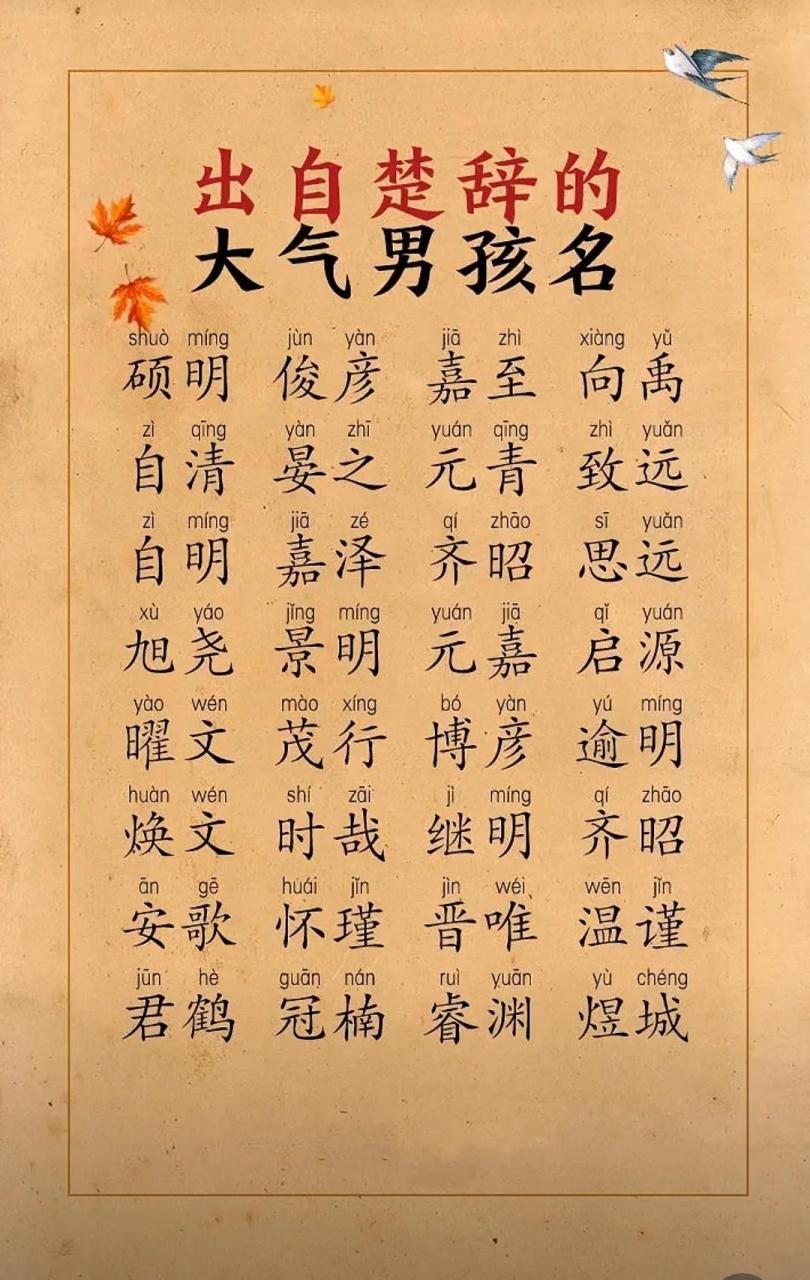 出自楚辞的
大气男孩名
shuò míng jùn yàn jiā zhì xiàng yǔ
硕明 俊彦 嘉至 向禹
zì qīng yàn zhī yuán qīng zhì yuǎn
自清 晏之 元青 致远
zì míng jiā zé qí zhāo sī yuǎn
自明 嘉泽 齐昭 思远
xù yáo jǐng míng yuán jiā qǐ yuán
旭尧 景明 元嘉 启源
yào wén mào xíng bó yàn yú míng
曜文 茂行 博彦 逾明
huàn wén shí zāi jì míng qí zhāo
焕文 时哉 继明 齐昭
ān gē huái jǐn jìn wéi wēn jǐn
安歌 怀瑾 晋唯 温谨
jūn hè guān nán ruì yuān yù chéng
君鹤 冠楠 睿渊 煜城